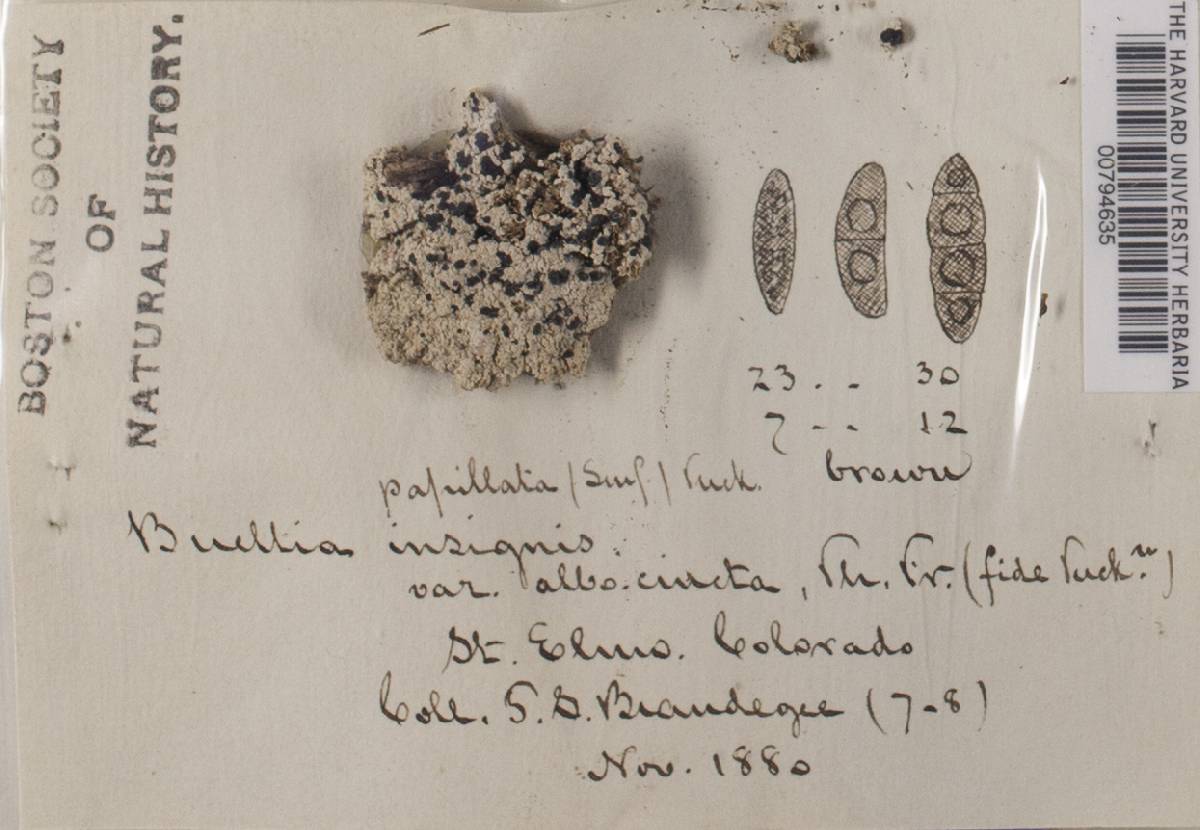 BOSTON SOCIETY
OF
NATURAL HISTORY.
THE HARVARD UNIVERSITY HERBARIA
00794635
23 . . - 30
7 - - . 12
brown
papillata (Smf.) Tuck.
Buellia insignis.
var. albo.cincta, Th. Fr. (fide Tuck.n)
St. Elmo. Colorado
Coll. T. S. Brandegee (7-8)
Nov. 1880